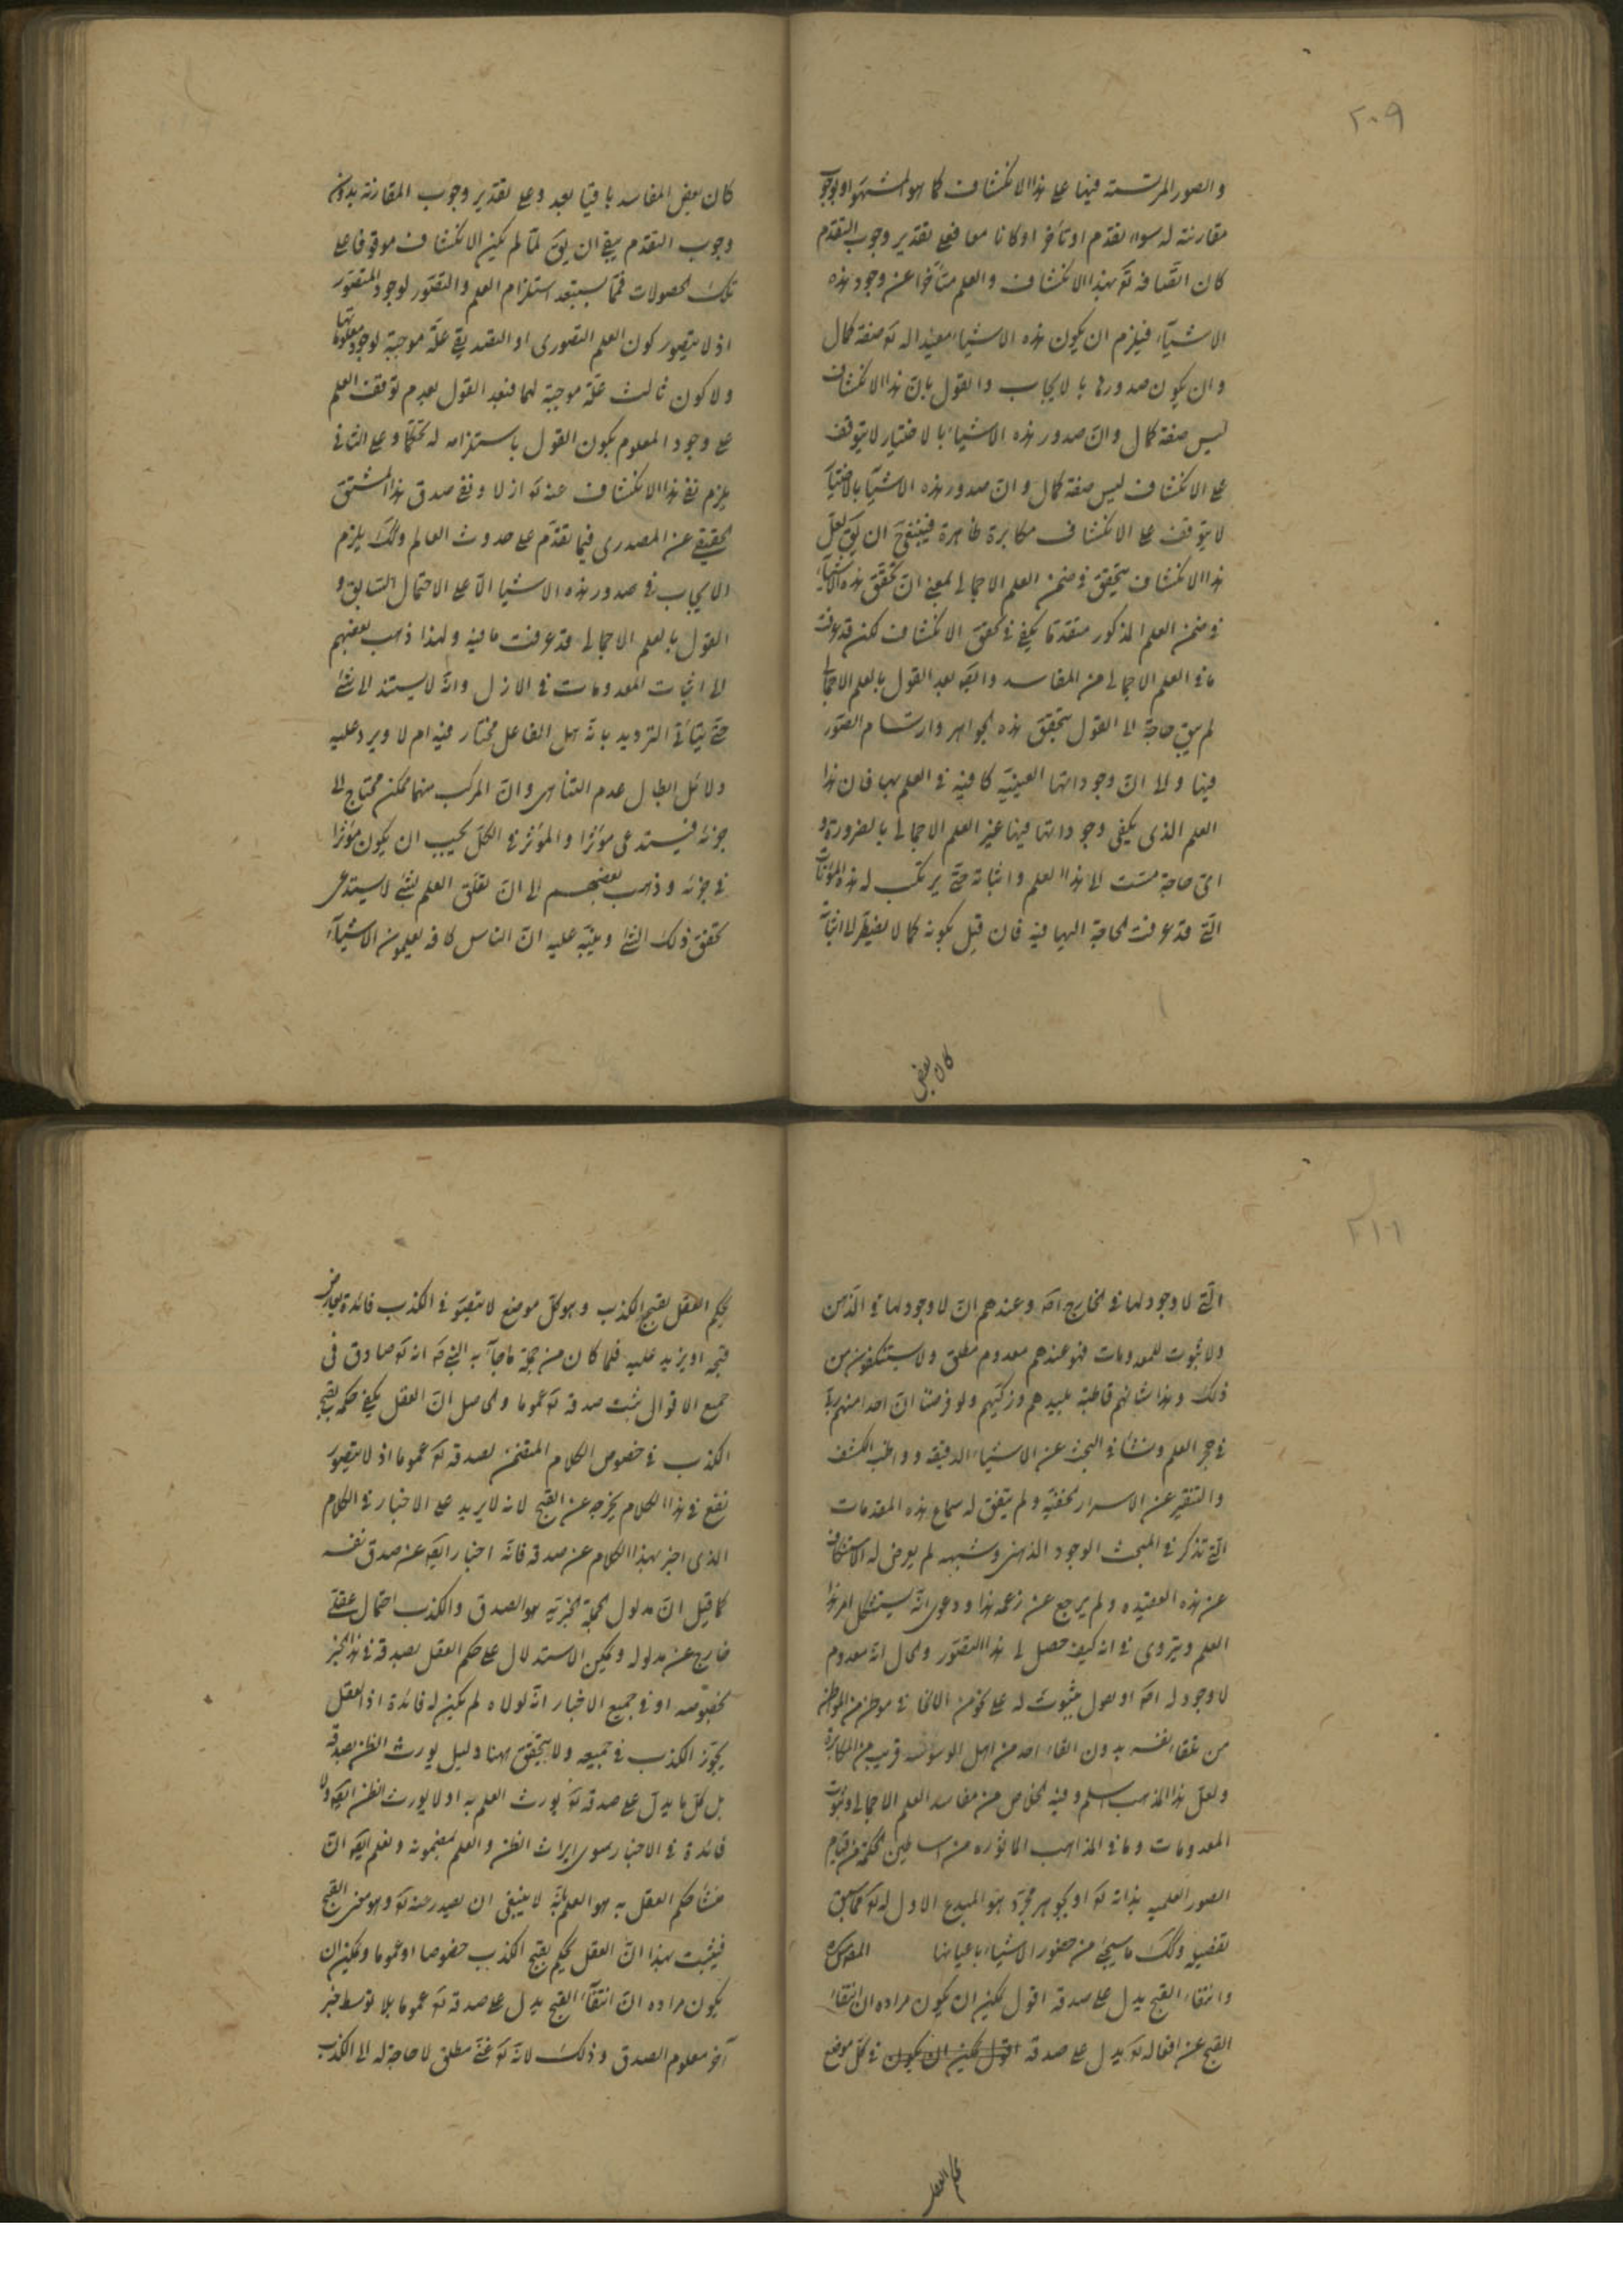 ٢٠٩
والصور المرتسمة فيها على هذا الانكشاف كما هو المشهور او بوجوب
مقارنته له سواء تقدم او تأخر او كانا معا فعلى تقدير وجوب التقدم
كان اتصافه تع بهذا الانكشاف والعلم متأخرا عن وجود هذه
الاشياء فيلزم ان يكون هذه الاشياء مفيدا له تع صفة كمال
وان يكون صدورها بالايجاب والقول بان هذا الانكشاف
ليس صفة كمال وان صدور هذه الاشياء بالاختيار لا يتوقف
على الانكشاف ليس صفة كمال وان صدور هذه الاشياء بالاختيار
لا يتوقف على الانكشاف مكابرة ظاهرة فينبغي ح ان يق لعل
هذا الانكشاف يتحقق في ضمن العلم الاجمالي بمعنى ان تحقق هذه الاشياء
في ضمن العلم المذكور متقدما يكفي في تحقق الانكشاف لكن قد عرفت
ما في العلم الاجمالي من المفاسد وايضا بعد القول بالعلم الاجمالي
لم يبق حاجة الى القول بتحقق هذه الجواهر وارتسام الصور
فيها ولا الى ان وجوداتها العينية كافية في العلم بها فان هذا
العلم الذي يكفي وجوداتها فيها غير العلم الاجمالي بالضرورة و
اي حاجة مست الى هذا العلم واثباته حتى يرتكب له هذه المؤنات
التي قد عرفت الحاجة اليها فيه فان قيل بكونه كمالا يضطر لاثباته
كان بعض
كان بعض المفاسد باقيا بعد وعلى تقدير وجوب المقارنة بدون
وجوب التقدم ينبغي ان يق لما لم يكن الانكشاف موقوفا على
تلك الحصولات فما يستبعد استلزام العلم والتصور لوجود المتصور
اذ لا يتصور كون العلم التصوري او التصديقي علة موجبة لوجود معلومها
ولا كون ثالث علة موجبة لهما فبعد القول بعدم توقف العلم
على وجود المعلوم يكون القول باستلزامه له تحكما وعلى الثاني
يلزم نفي هذا الانكشاف عنه تع ازلا ونفي صدق هذا المشتق
الحقيقي عن المصدري فيما تقدم على حدوث العالم وكك يلزم
الايجاب في صدور هذه الاشياء الا على الاحتمال السابق و
القول بالعلم الاجمالي قد عرفت ما فيه ولهذا ذهب بعضهم
الى اثبات المعدومات في الازل وانه لا يستند الى شئ
حتى يتأتى الترديد بانه هل الفاعل مختار فيه ام لا ويرد عليه
دلائل ابطال عدم التناهي وان المركب منها ممكن محتاج الى
جزئه فيستدعي مؤثرا والمؤثر في الكل يجب ان يكون مؤثرا
في جزئه وذهب بعضهم الى ان تعلق العلم بشئ لا يستدعي
تحقق ذلك الشئ وينبه عليه ان الناس كافة يعلمون الاشياء
٢١٠
التي لا وجود لها في الخارج اصلا وعندهم ان لا وجود لها في الذهن
ولا ثبوت للمعدومات فهو عندهم معدوم مطلق ولا يستنكفون من
ذلك وهذا شانهم قاطبة بليدهم وزكيهم ولو فرضنا ان احدا منهم ربا
في حجر العلم ونشأ في البحث عن الاشياء الدقيقة وواظب الكشف
والتنقير عن الاسرار الخفية ولم يتفق له سماع هذه المقدمات
التي تذكر في المبحث الوجود الذهني وشبهه لم يعرض له الاستنكاف
عن هذه العقيدة ولم يرجع عن زعمه هذا ودعوى انه يستشكل امر هذا
العلم ويتروى في انه كيف حصل لي هذا التصور والحال انه معدوم
لا وجود له اصلا او يعول بثبوت له على نحو من الانحاء في موطن من المواطن
من تلقاء نفسه بدون القاء احد من اهل الوسوسة قريب من المكابرة
ولعل هذا المذهب اسلم وفيه الخلاص من مفاسد العلم الاجمالي وثبوت
المعدومات وما في المذاهب الماثورة من اساطين الحكمة من قيام
الصور العلمية بذاته تع او بجوهر مجرد هو المبدع الاول له تع كما سبق
تفصيله وكك ما سيجئ من حضور الاشياء باعيانها
وانتفاء القبح يدل على صدقه اقول يمكن ان يكون مراده ان انتفاء
القبح عن افعاله تع يدل على صدقه اقول يمكن ان يكون في كل موضع
يحكم العقل
يحكم العقل بقبح الكذب وهو كل موضع لا يتصور في الكذب فائدة يعارض
قبحه او يزيد عليه فلما كان من جملة ما جاء به النبي ص انه تع صادق في
جميع الاقوال ثبت صدقه تع عموما والحاصل ان العقل يكفي حكمه بقبح
الكذب في خصوص الكلام المتضمن لصدقه تع عموما اذ لا يتصور
نفع في هذا الكلام يخرجه عن القبح لانه لا يريد على الاخبار في الكلام
الذي اخبر بهذا الكلام عن صدقه فانه اخبار ايضا عن صدق نفسه
كما قيل ان مدلول الجملة الخبرية هو الصدق والكذب احتمال عقلي
خارج عن مدلوله ويمكن الاستدلال على حكم العقل بصدقه في هذا الخبر
بخصوصه او في جميع الاخبار انه لولاه لم يكن له فائدة اذ العقل
يجوز الكذب في جميعه ولا يتحقق ههنا دليل يورث الظن بصدقه
بل كل ما يدل على صدقه تع يورث العلم به او لا يورث الظن ايضا ولا
فائدة في الاخبار سوى ايراث الظن والعلم بمضمونه ونعلم ايضا ان
منشأ حكم العقل به هو العلم بانه لا ينبغي ان يصدر عنه تع وهو معنى القبح
فيثبت بهذا ان العقل يحكم بقبح الكذب خصوصا او عموما ويمكن ان
يكون مراده ان انتفاء القبح يدل على صدقه تع عموما بلا توسط خبر
آخر معلوم الصدق وذلك لانه تع غني مطلق لا حاجة له الى الكذب